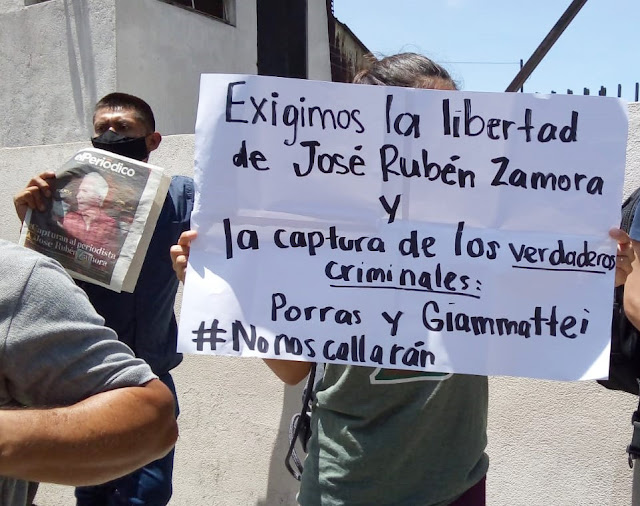 elPeriódico
Capturan al periodista
José Rubén Zamora
Exigimos la libertad
de José Rubén Zamora
y
la captura de los verdaderos
criminales:
Porras y Giammattei
#No nos callarán